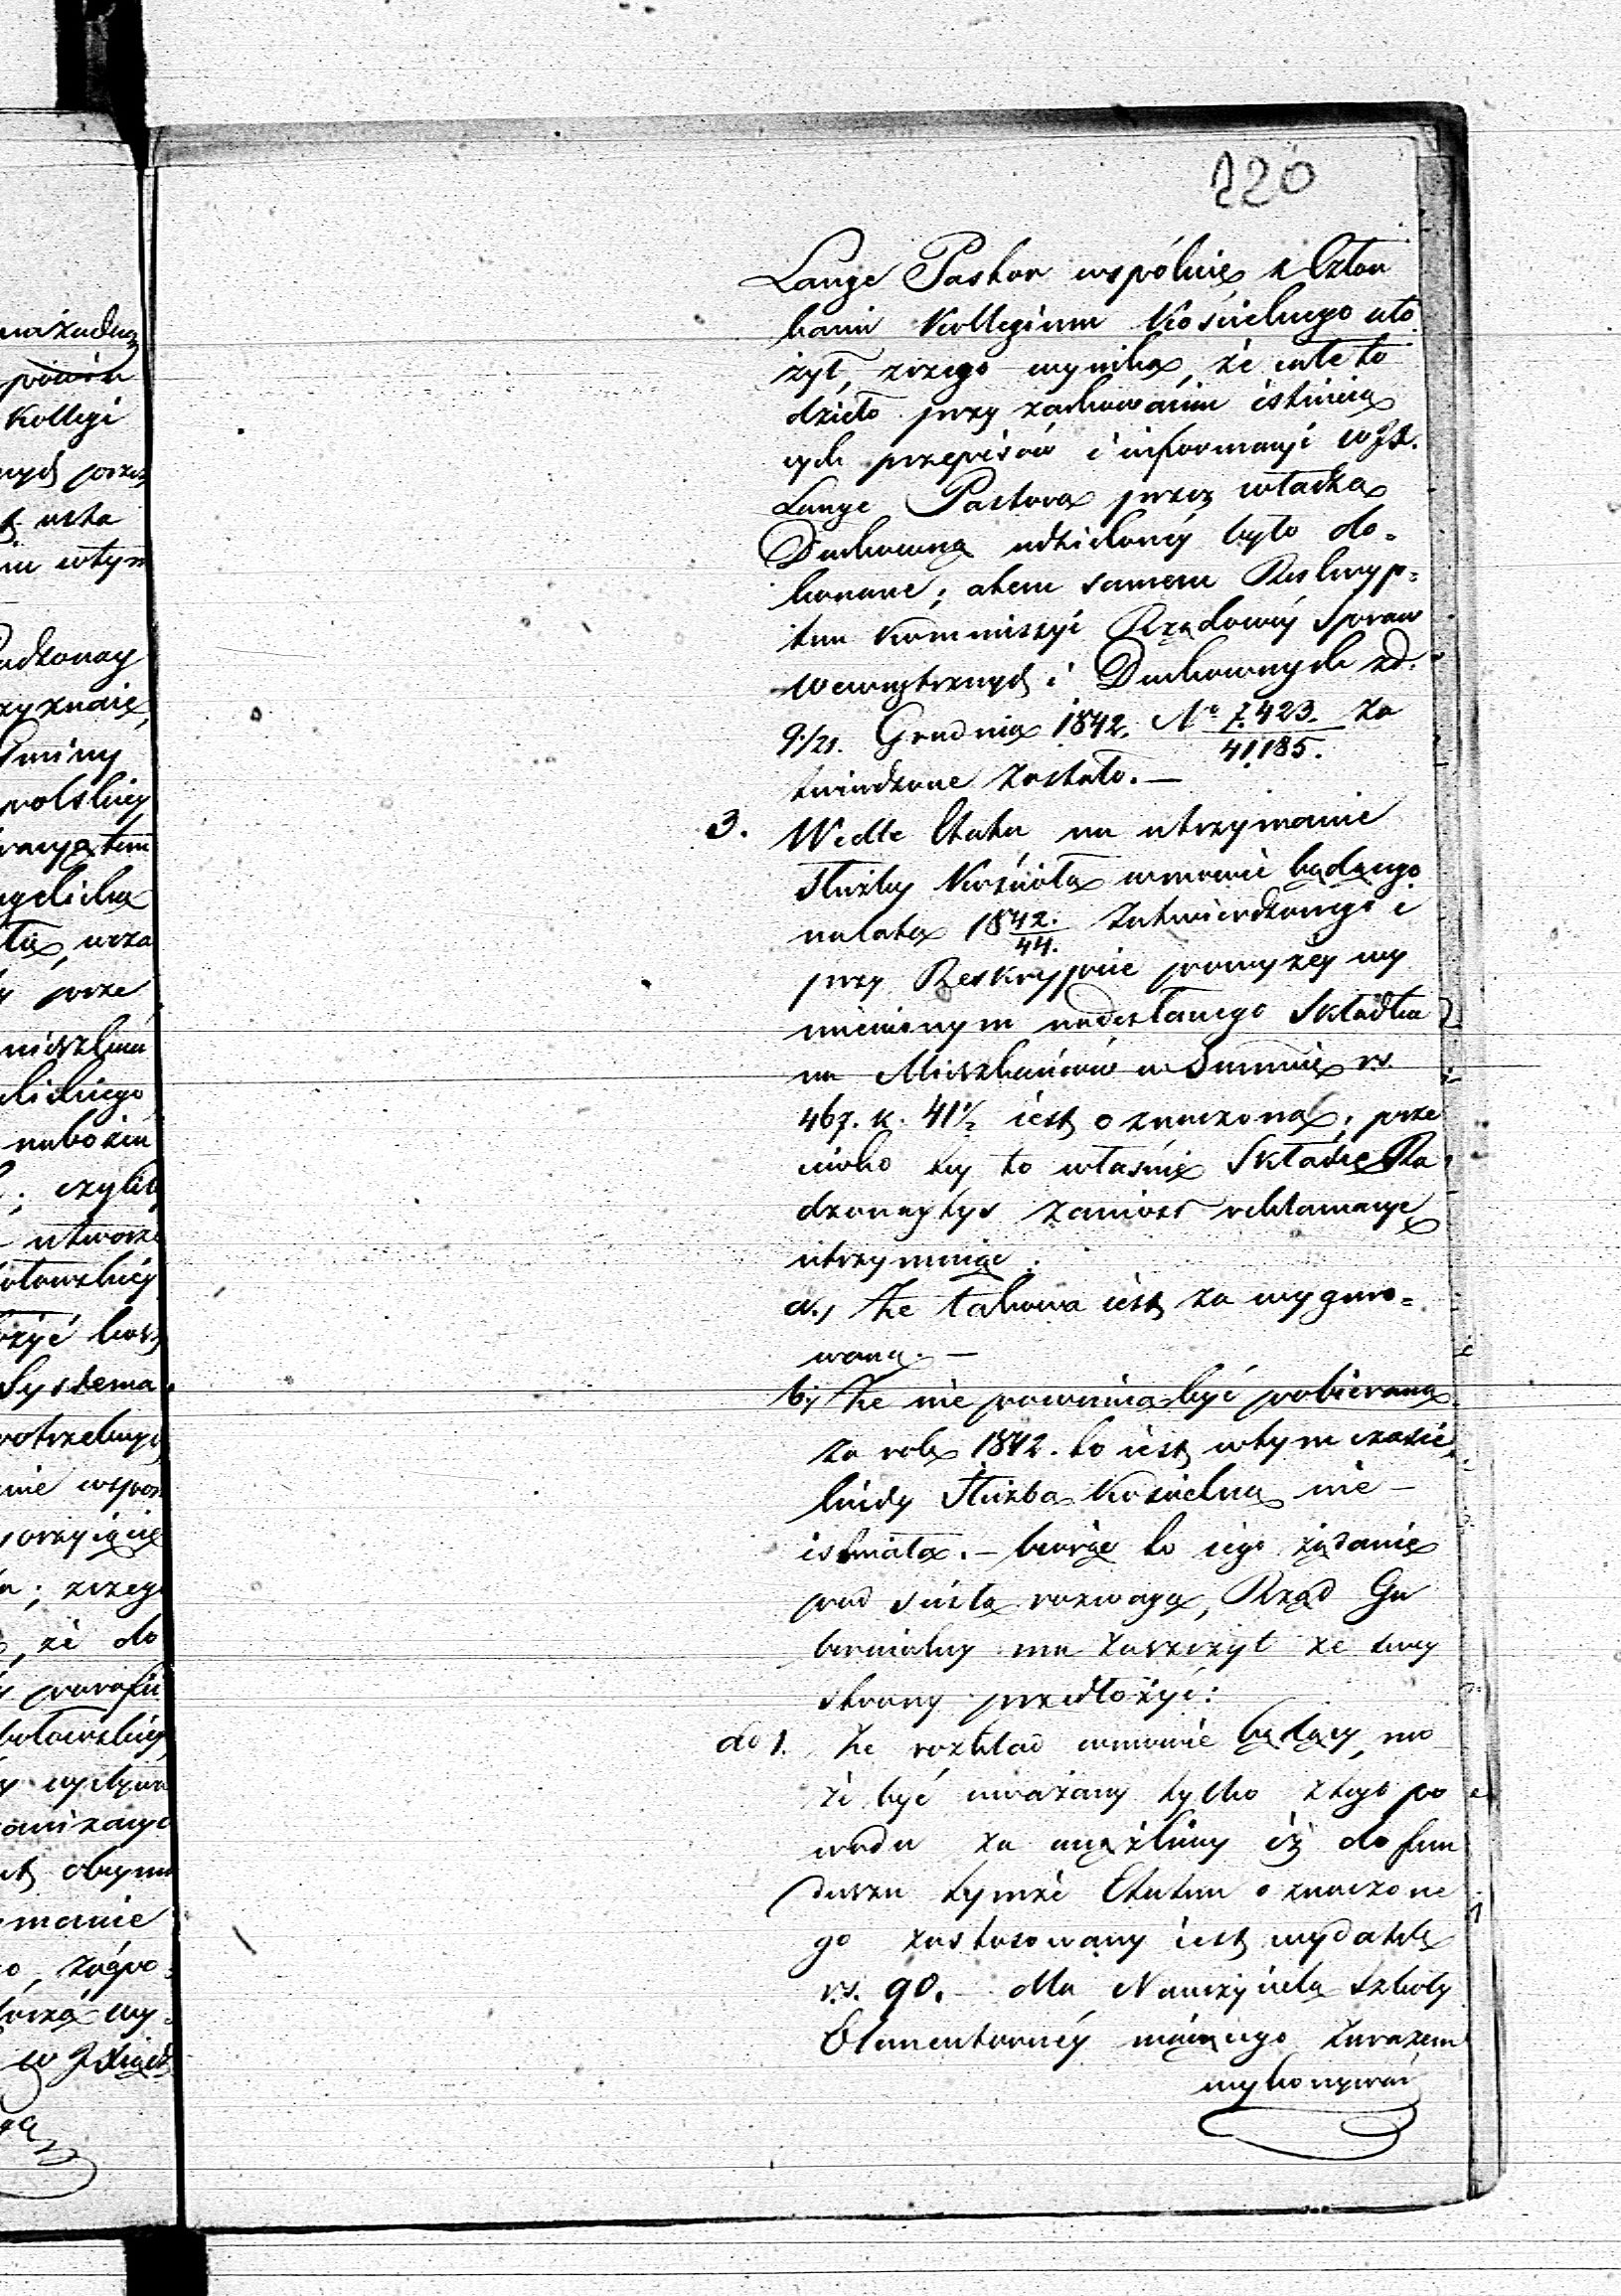 220
Lange Pastor wspólnie z Człon
kami Kollegium Kościelnego uło
żył, z czego wynika, że całe to
dzieło przy zachowaniu istnieią
cych przepisów i informacyi WJX.
Lange Pastora przez władzą
Duchowną udzieloney było do=
konane; a tem samem Reskryp=
tem Kommissyi Rządowéy Spraw
Wewnętrznych i Duchownych zd.
9/21. Grudnia 1842. No 7.423./41.185. za
twierdzone zostało.—
3. Wedle Etatu na utrzymanie
służby Kościoła w mowie będącego
na lata 1842./44. zatwierdzonego i
przy Reskrypcie powyżéy wy
mienionym nadesłanego Składka
na Mieszkańców w Summie rs.
467. k. 41½ iest oznaczona; prze
ciwko téy to właśnie Składce Ra
dzonaytys zaniósł reklamacye
utrzymuiąc:
a., Że takowa iest za wygóro=
waną.—
b., Że nie powinna być pobieraną
za rok 1842. to iest w tym czasie
kiedy służba Kościelna nie
istniała.— biorąc to iego żądanie
pod ścisłą rozwagę, Rząd Gu
bernialny ma zaszczyt ze swey
strony przedłożyć:
do 1. Że rozkład w mowie będący, mo
że być uważany tylko z tego po
wodu za uciążliwy iż do fun
duszu tymże Etatem oznaczone
go zastosowany iest wydatek
rs. 90. dla Nauczyciela Szkoły
Elementarnéy maiącego zarazem
wykonywać
na żadną
Kollegi
nych przez
w tym
Radzonay
Gminy
polskiey
ngelicka
prze
lickiego
czyliby
utworze
Systema
potrzebnych
z czego
, że do
parafii
manie
, zaspo